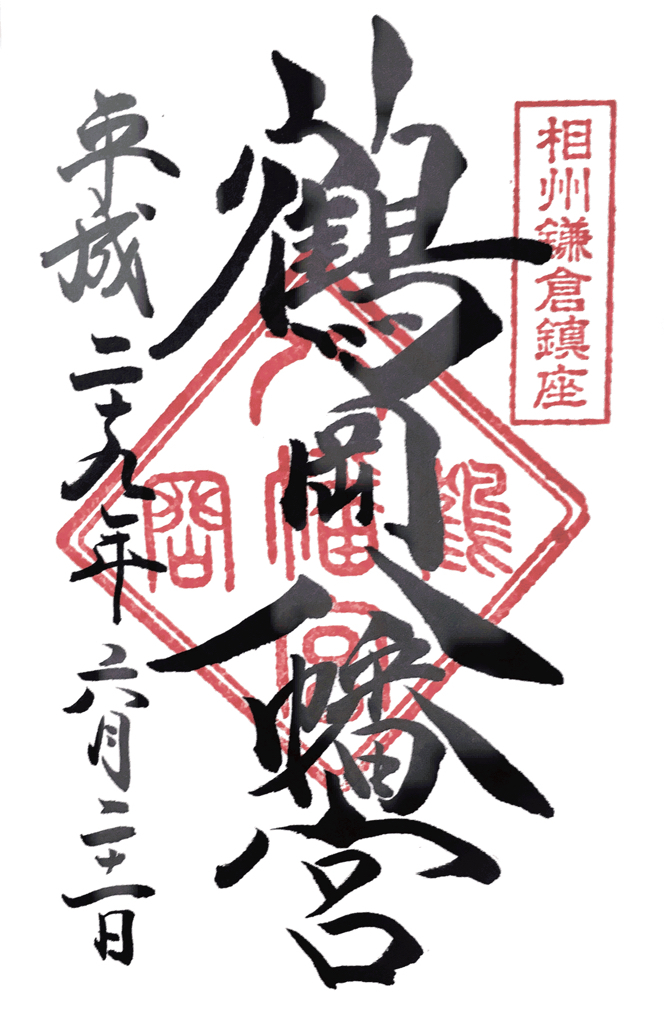 相州鎌倉鎮座
鶴岡八幡宮
鶴
八幡宮
岡
平成二十九年六月二十一日